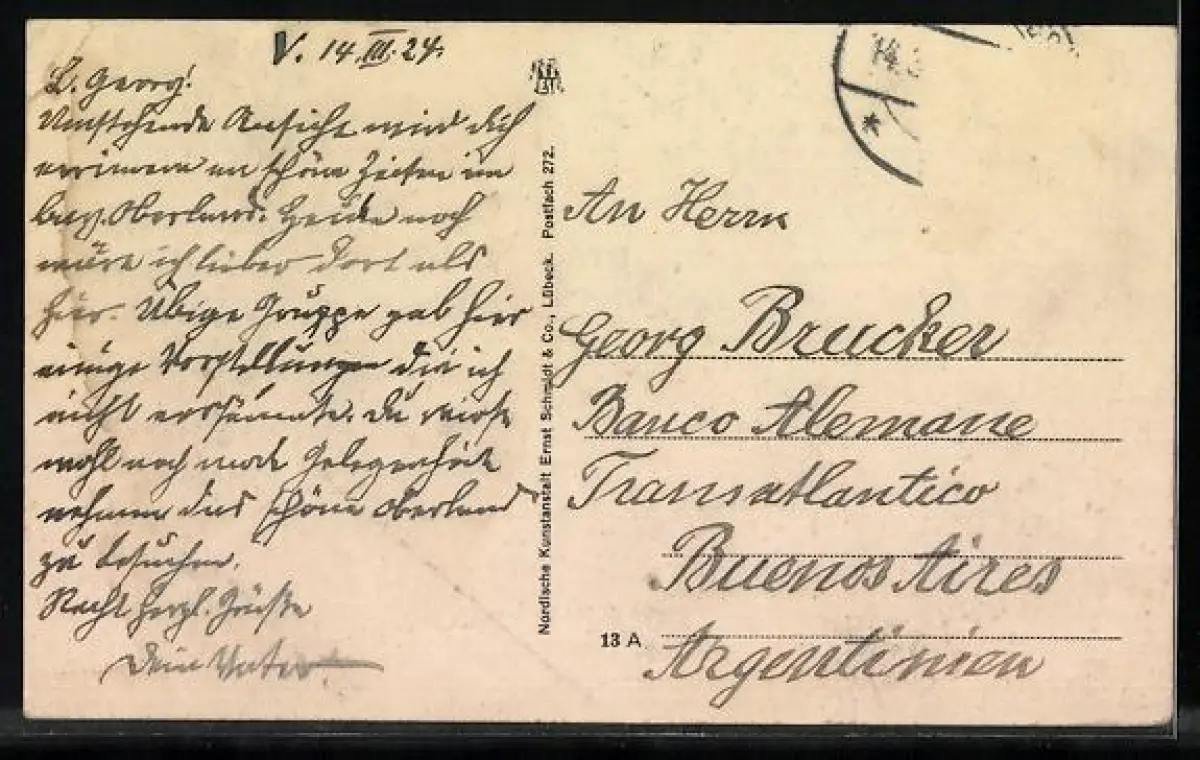 V. 14. III. 24.
L. Georg!
Umstehende Ansicht wird dich
erinnern an schöne Zeiten im
bay. Oberland. Heute noch
wäre ich lieber dort als
hier. Übige Gruppe gab hier
einige Vorstellungen die ich
nicht versäumte. Du wirst
wohl noch mehr Gelegenheit
nehmen das schöne Oberland
zu besuchen.
Recht herzl. Grüße
Dein Vater.
Nordische Kunstanstalt Ernst Schmidt & Co., Lübeck. Postfach 272.
14.3
An Herrn
Georg Brucker
Banco Alemane
Transatlantico
Buenos Aires
13 A.
Argentinien